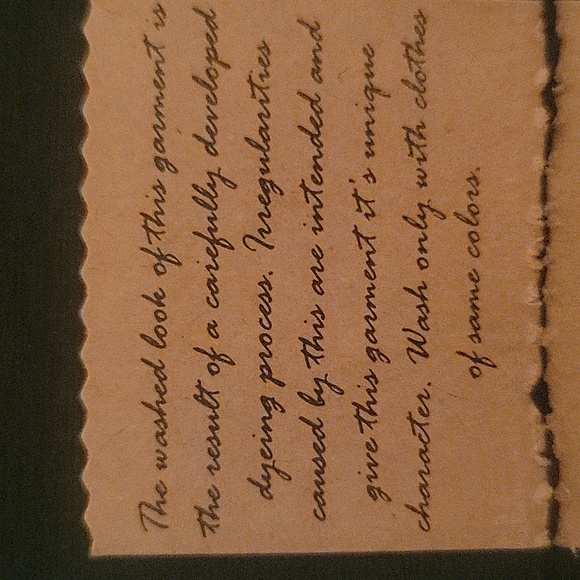 The washed look of this garment is
the result of a carefully developed
dyeing process. Irregularities
caused by this are intended and
give this garment it's unique
character. Wash only with clothes
of same colors.